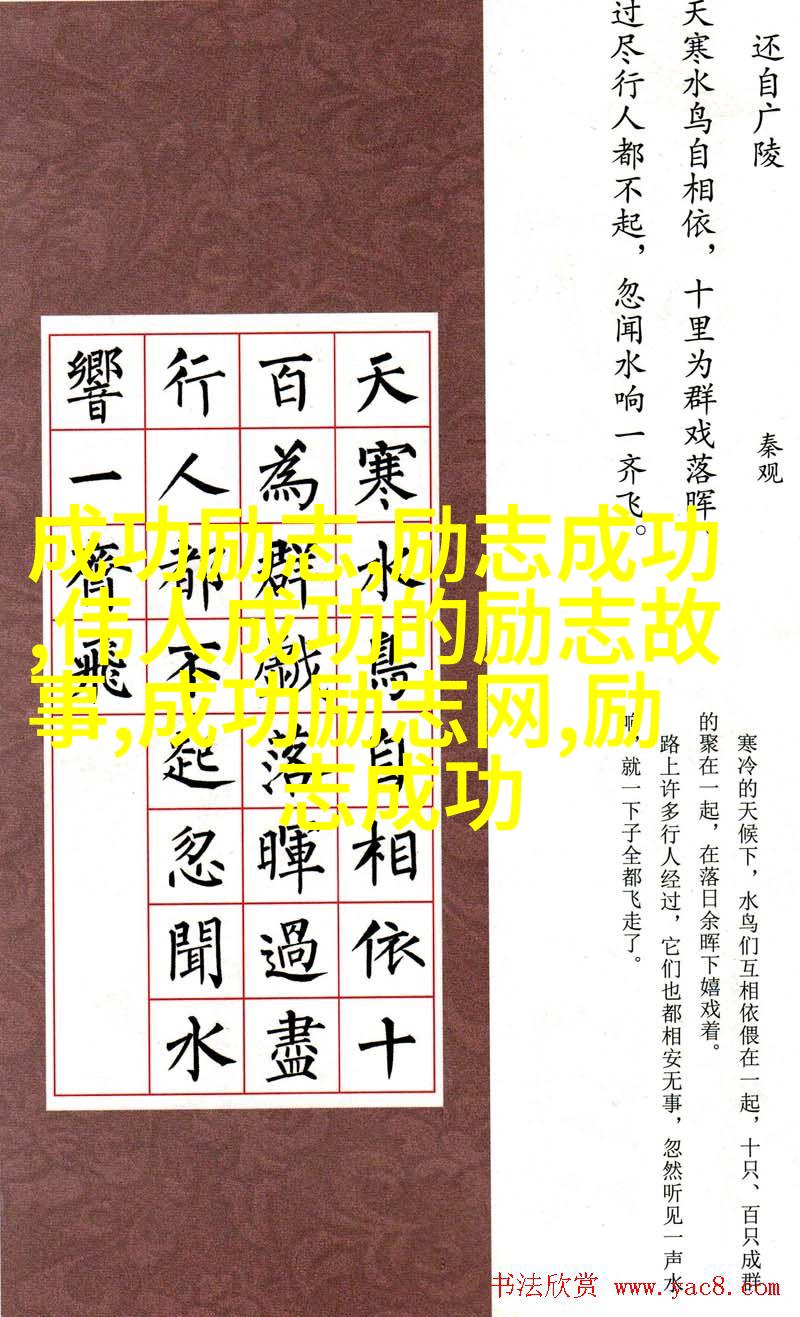 还自广陵
秦观
天寒水鸟自相依，十里为群戏落晖、
过尽行人都不起，忽闻水响一齐飞。
天寒水鳥自相依十
百為群戲落暉過盡
行人都不起忽聞水
響一齊飛
成功励志,励志成功
,伟人成功的励志故
事,成功励志网,励
志成功
寒冷的天候下，水鸟们互相依偎在一起，十只、百只成群
的聚在一起，在落日余晖下嬉戏着。
路上许多行人经过，它们也都相安无事，忽然听见一声水
响，就一下子全都飞走了。
书法欣赏 www.yac8.com